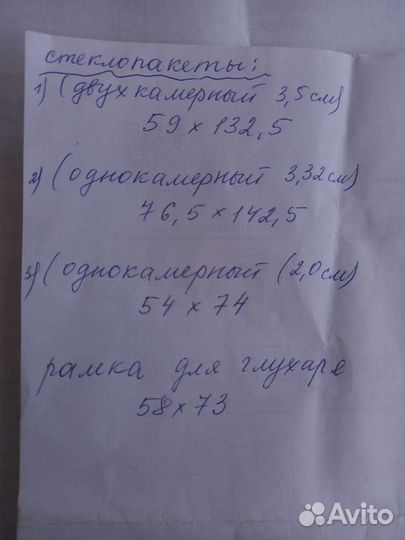 стеклопакеты:
1) (двухкамерный 3,5 см)
59 х 132,5
2) (однокамерный 3,32 см)
76,5 х 142,5
3) (однокамерный (2,0 см)
54 х 74
рамка для глухаря
58 х 73
Avito